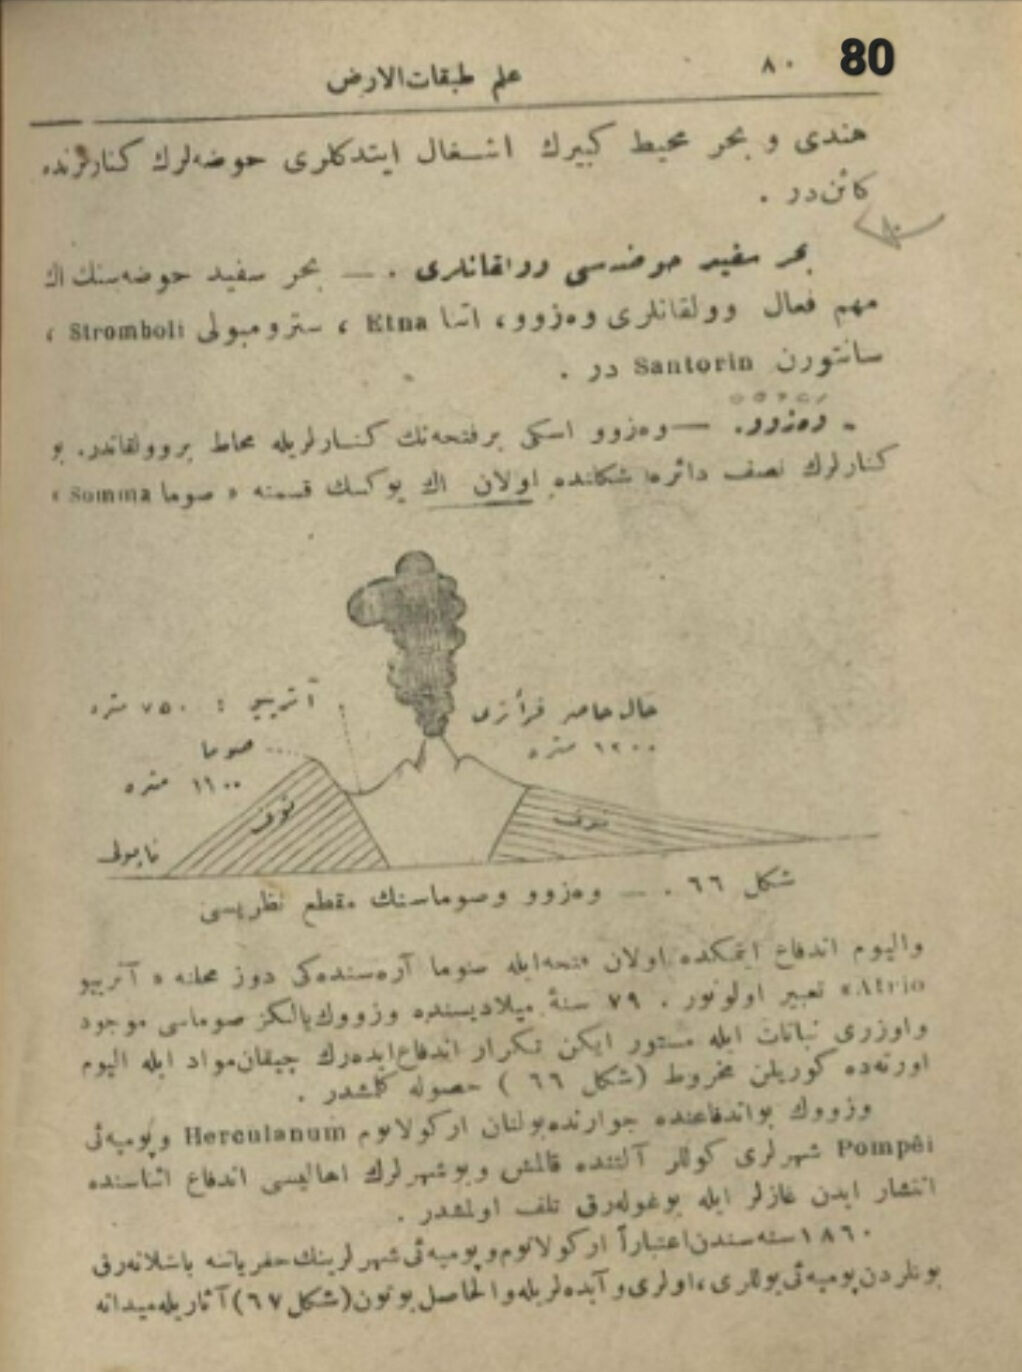 80
٨٠
علم طبقات‌الارض
هندی و بحر محیط کبیرك اشـغال ایتدکلری حوضه‌لرك کنارلرنده
کائن‌در .
بحر سفید حوضه‌سی وولقانلری . — بحر سفید حوضه‌سنك اك
مهم فعال وولقانلری وه‌زوو، اتنا Etna ، سترومبولی Stromboli ،
سانتورن Santorin در .
ـ وه‌زوو. — وه‌زوو اسکی برفتحه‌نك کنـارلریله محاط بروولقاندر. بو
کنارلرك نصف دائره شکلنده اولان اك یوکسك قسمنه « صوما Somma »
آتریو : ٧٥٠ متره
حال حاضر قرأتری
١٢٠٠ متره
صوما
١١٠٠ متره
توف
توف
ناپولی
شکل ٦٦ . — وه‌زوو وصوماسنك مقطع نظریسی
والیوم اندفاع ایتمکده اولان فتحه‌ایله صوما آره‌سنده‌کی دوز محله « آتریو
Atrio» تعبیر اولونور . ٧٩ سنۀ میلادیسنده وزووك یالکز صوماسی موجود
واوزری نباتات ایله مستور ایکن تکرار اندفاع‌ایده‌رك چیقان‌مواد ایله الیوم
اورته‌ده کوریلن مخروط (شکل ٦٦ ) حصوله کلمشدر .
وزووك بواندفاعنده جوارنده‌بولنان ارکولانوم Herculanum وپومپه‌ئی
Pompêi شهرلری کوللر آلتنده قالمش وبوشهرلرك اهالیسی اندفاع اثناسنده
انتشار ایدن غازلر ایله بوغوله‌رق تلف اولمشدر .
١٨٦٠سنه‌سندن‌اعتباراً ارکولانوم‌وپومپه‌ئی‌شهرلرینك‌حفریاتنه باشلانه‌رق
بونلردن‌پومپه‌ئی‌یوللری،اولری‌وآبده‌لریله‌والحاصل‌بوتون(شکل٦٧)آثاریله‌میدانه